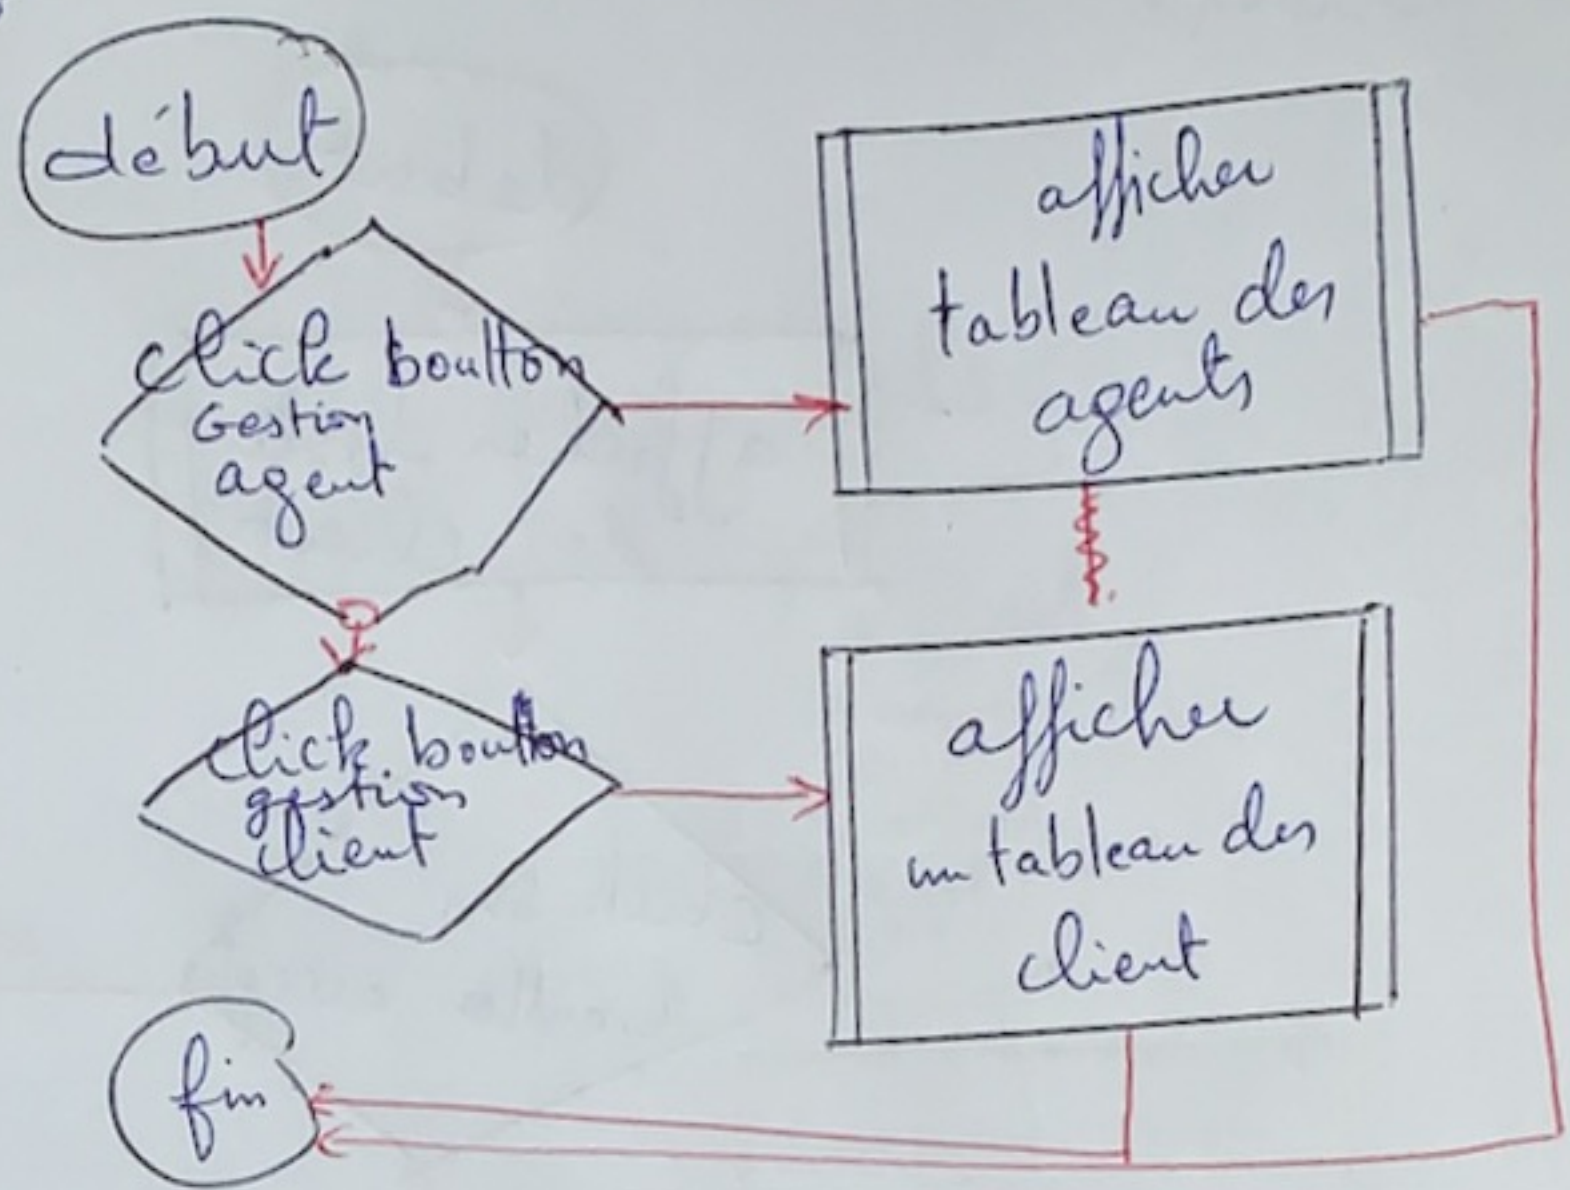 début
click boultton
Gestion
agent
afficher
tableau des
agents
click boultton
gestion
client
afficher
un tableau des
client
fin